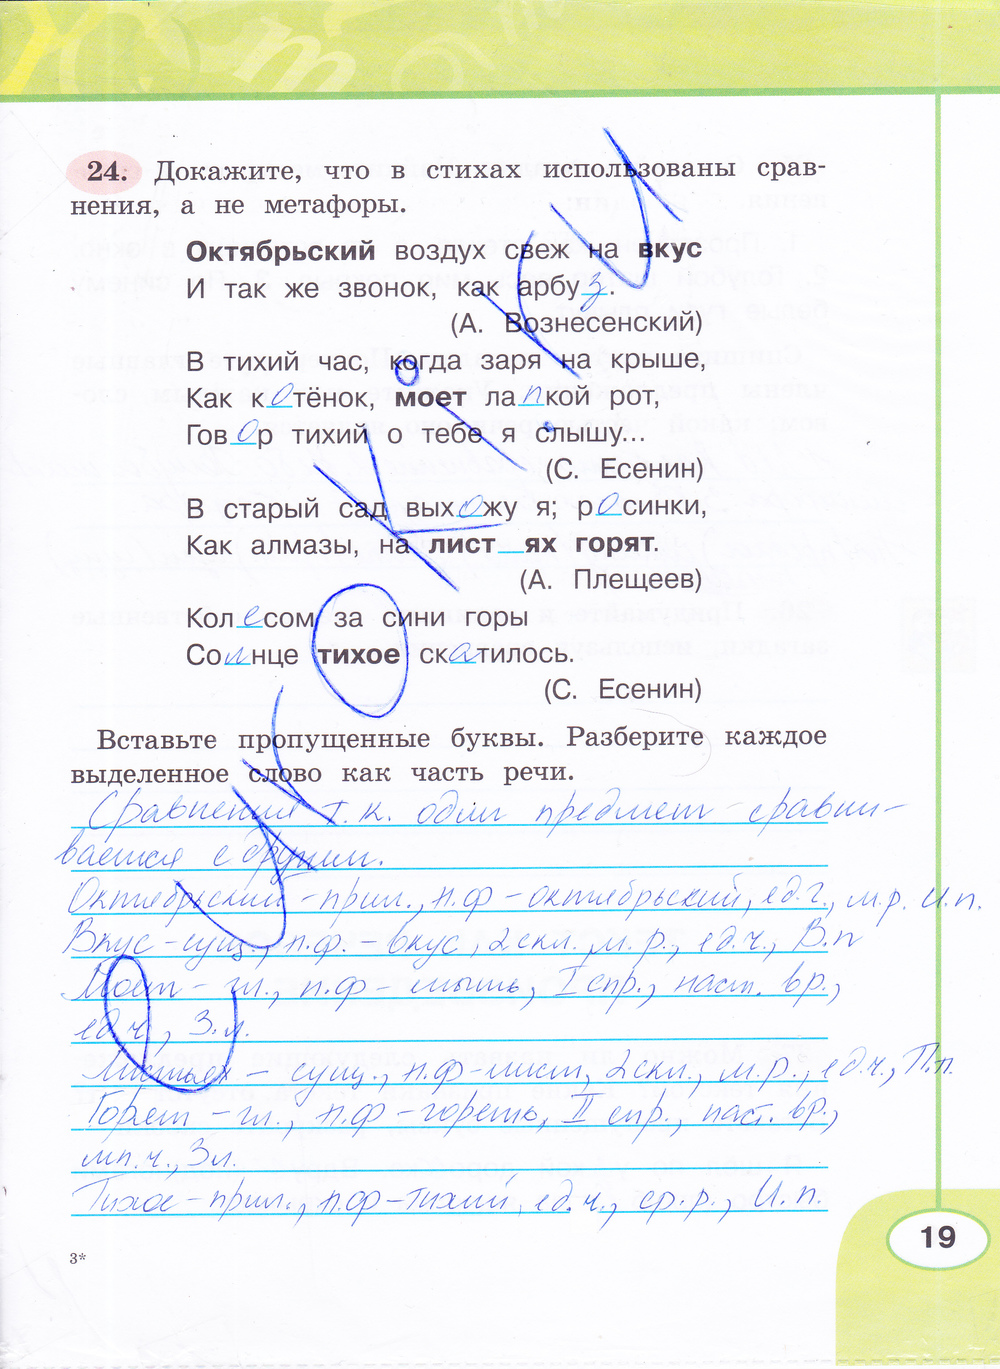 24. Докажите, что в стихах использованы срав-
нения, а не метафоры.
Октябрьский воздух свеж на вкус
И так же звонок, как арбуз.
(А. Вознесенский)
В тихий час, когда заря на крыше,
Как котёнок, моет лапкой рот,
Говор тихий о тебе я слышу...
(С. Есенин)
В старый сад выхожу я; росинки,
Как алмазы, на лист_ях горят.
(А. Плещеев)
Колесом за сини горы
Солнце тихое скатилось.
(С. Есенин)
Вставьте пропущенные буквы. Разберите каждое
выделенное слово как часть речи.
Сравнения т.к. один предмет сравни-
вается с другим.
Октябрьский - прил., н.ф - октябрьский, ед.ч., м.р. И.п.
Вкус - сущ., н.ф. - вкус, 2скл., м.р., ед.ч., В.п
Моет - гл., н.ф - мыть, I спр., наст. вр.,
ед.ч., 3.л.
Листьях - сущ., н.ф - лист, 2скл., м.р., ед.ч., П.п.
Горят - гл., н.ф - гореть, II спр., наст. вр.,
мн.ч., 3л.
Тихое - прил., н.ф - тихий, ед.ч., ср.р., И.п.
3*
19